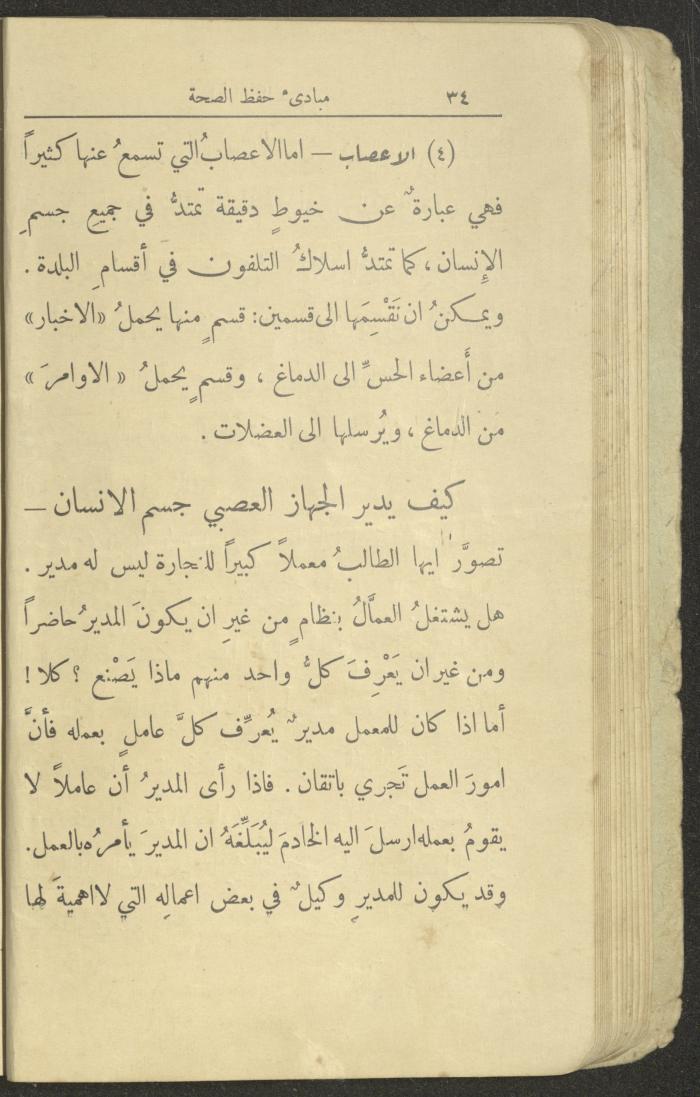 ٣٤ مبادىء حفظ الصحة
(٤) الاعصاب — اما الاعصابُ التي تسمعُ عنها كثيراً
فهي عبارةٌ عن خيوطٍ دقيقة تمتدُّ في جميعِ جسمِ
الإِنسان، كما تمتدُّ اسلاكُ التلفون في أقسامِ البلدة.
ويمكنُ ان نَقْسِمَها الى قسمين: قسمٍ منها يحملُ «الاخبار»
من أَعضاء الحسِّ الى الدماغ، وقسمٍ يحملُ «الاوامرَ»
من الدماغ، ويُرسلها الى العضلات.
كيف يدير الجهاز العصبي جسم الانسان —
تصوَّر ايها الطالبُ معملاً كبيراً للنجارة ليس له مدير.
هل يشتغلُ العمَّالُ بنظامٍ من غيرِ ان يكونَ المديرُ حاضراً
ومن غير ان يَعْرِفَ كلُّ واحد منهم ماذا يَصْنع ؟ كلا !
أما اذا كان للمعمل مديرٌ يُعرِّف كلَّ عاملٍ بعمله فأنَّ
امورَ العمل تَجري باتقان. فاذا رأى المديرُ أن عاملاً لا
يقومُ بعمله ارسلَ اليه الخادمَ ليُبَلِّغَهُ ان المديرَ يأمرُه بالعمل.
وقد يكون للمديرِ وكيلٌ في بعض اعمالِه التي لا اهميةَ لها